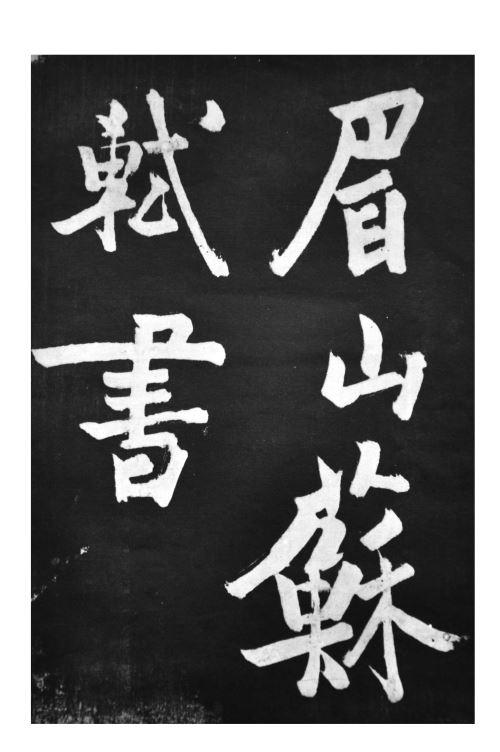 眉山蘇
軾書